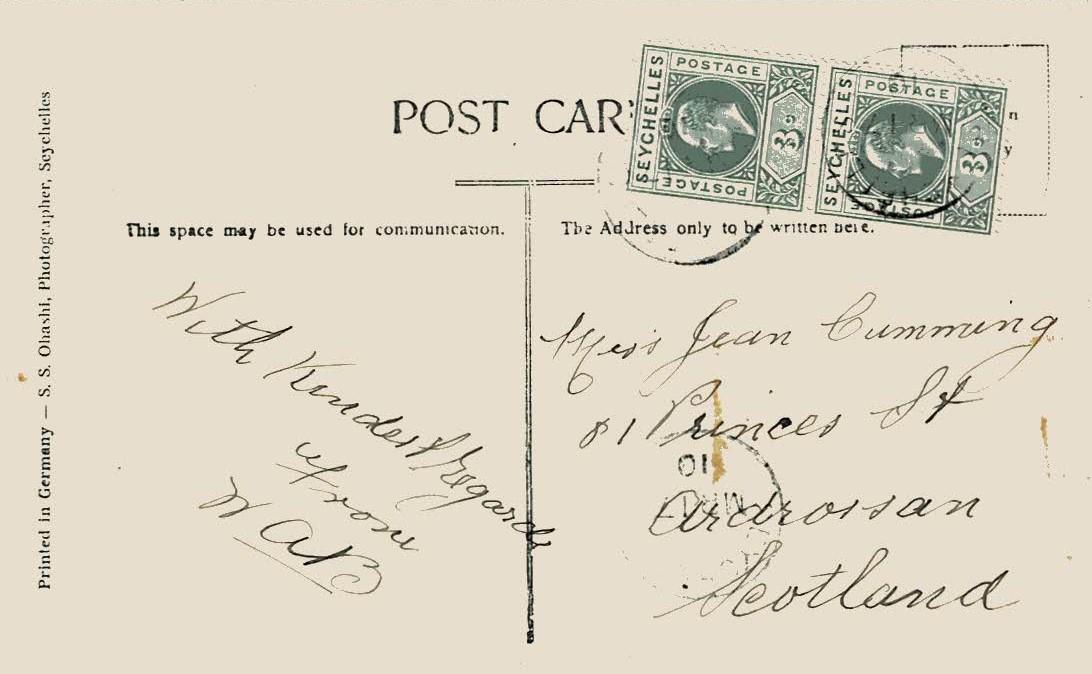 POST CAR
SEYCHELLES
POSTAGE
3c
POSTAGE
SEYCHELLES
POSTAGE
3c
POSTAGE
n
y
This space may be used for communication.
The Address only to be written here.
Printed in Germany — S. S. Ohashi, Photographer, Seychelles
With Kindest Regards
from
W A B
Miss Jean Cumming
81 Princes St
Ardrossan
Scotland
MR
10